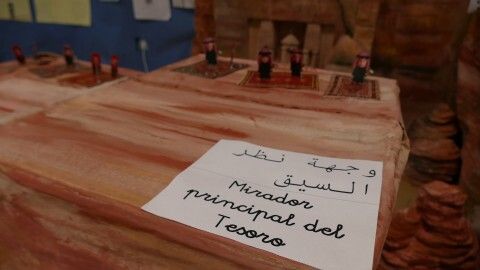 وجهة نظر
السيق
Mirador
principal del
Tesoro